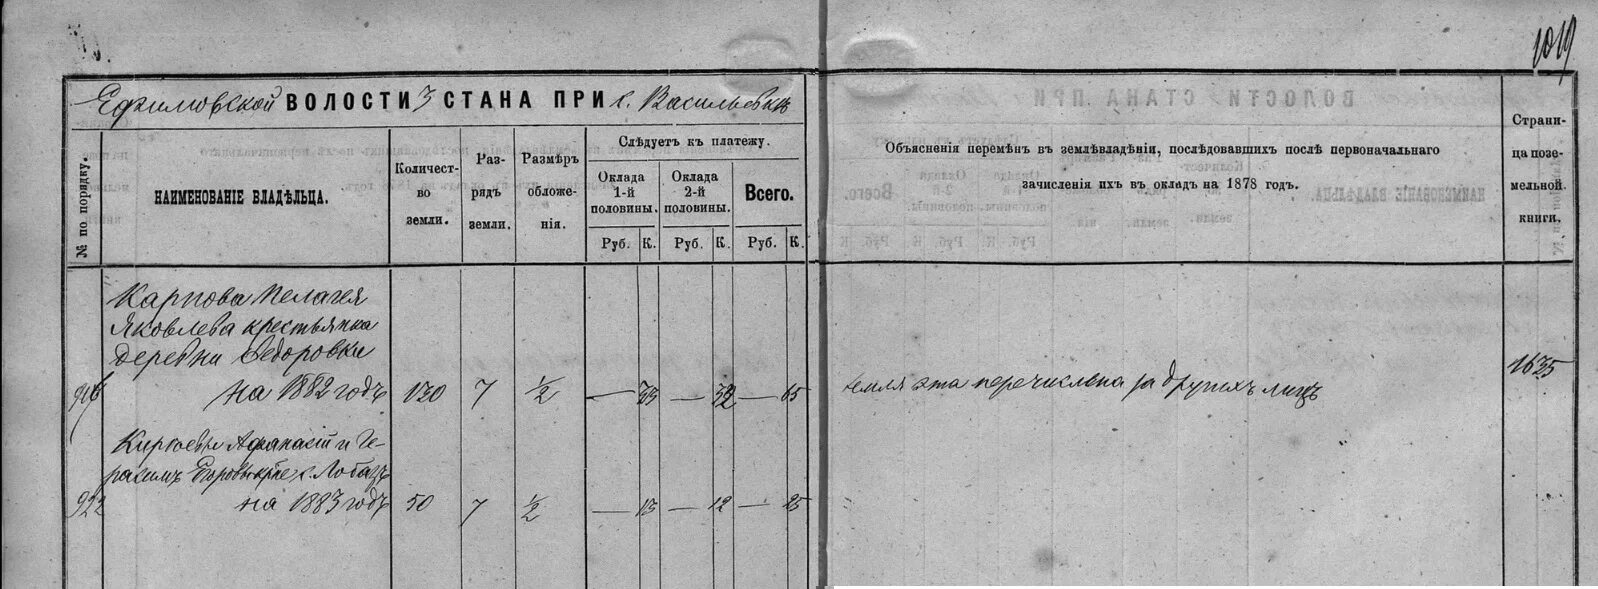 1019
Ефимовской ВОЛОСТИ 3 СТАНА ПРИ с. Васильевк
№ по порядку.
НАИМЕНОВАНІЕ ВЛАДѢЛЬЦА.
Количест-
во
земли.
Раз-
рядъ
земли.
Размѣръ
обложе-
нія.
Слѣдуетъ къ платежу.
Оклада
1-й
половины.
Оклада
2-й
половины.
Всего.
Руб. К. Руб. К. Руб. К.
Объясненія перемѣнъ въ землѣвладѣніи, послѣдовавшихъ послѣ первоначальнаго
зачисленія ихъ въ окладъ на 1878 годъ.
Страни-
ца позе-
мельной
книги.
Карпова Пелагея
Яковлева крестьянка
деревни Федоровки
на 1882 годъ 130 7 1/2 — 33 — 32 — 65 земля эта перечислена за другихъ лицъ 1635
Афанасій и Ге-
расимъ Егоровы
922 на 1883 годъ 50 7 1/2 — 13 — 12 — 25